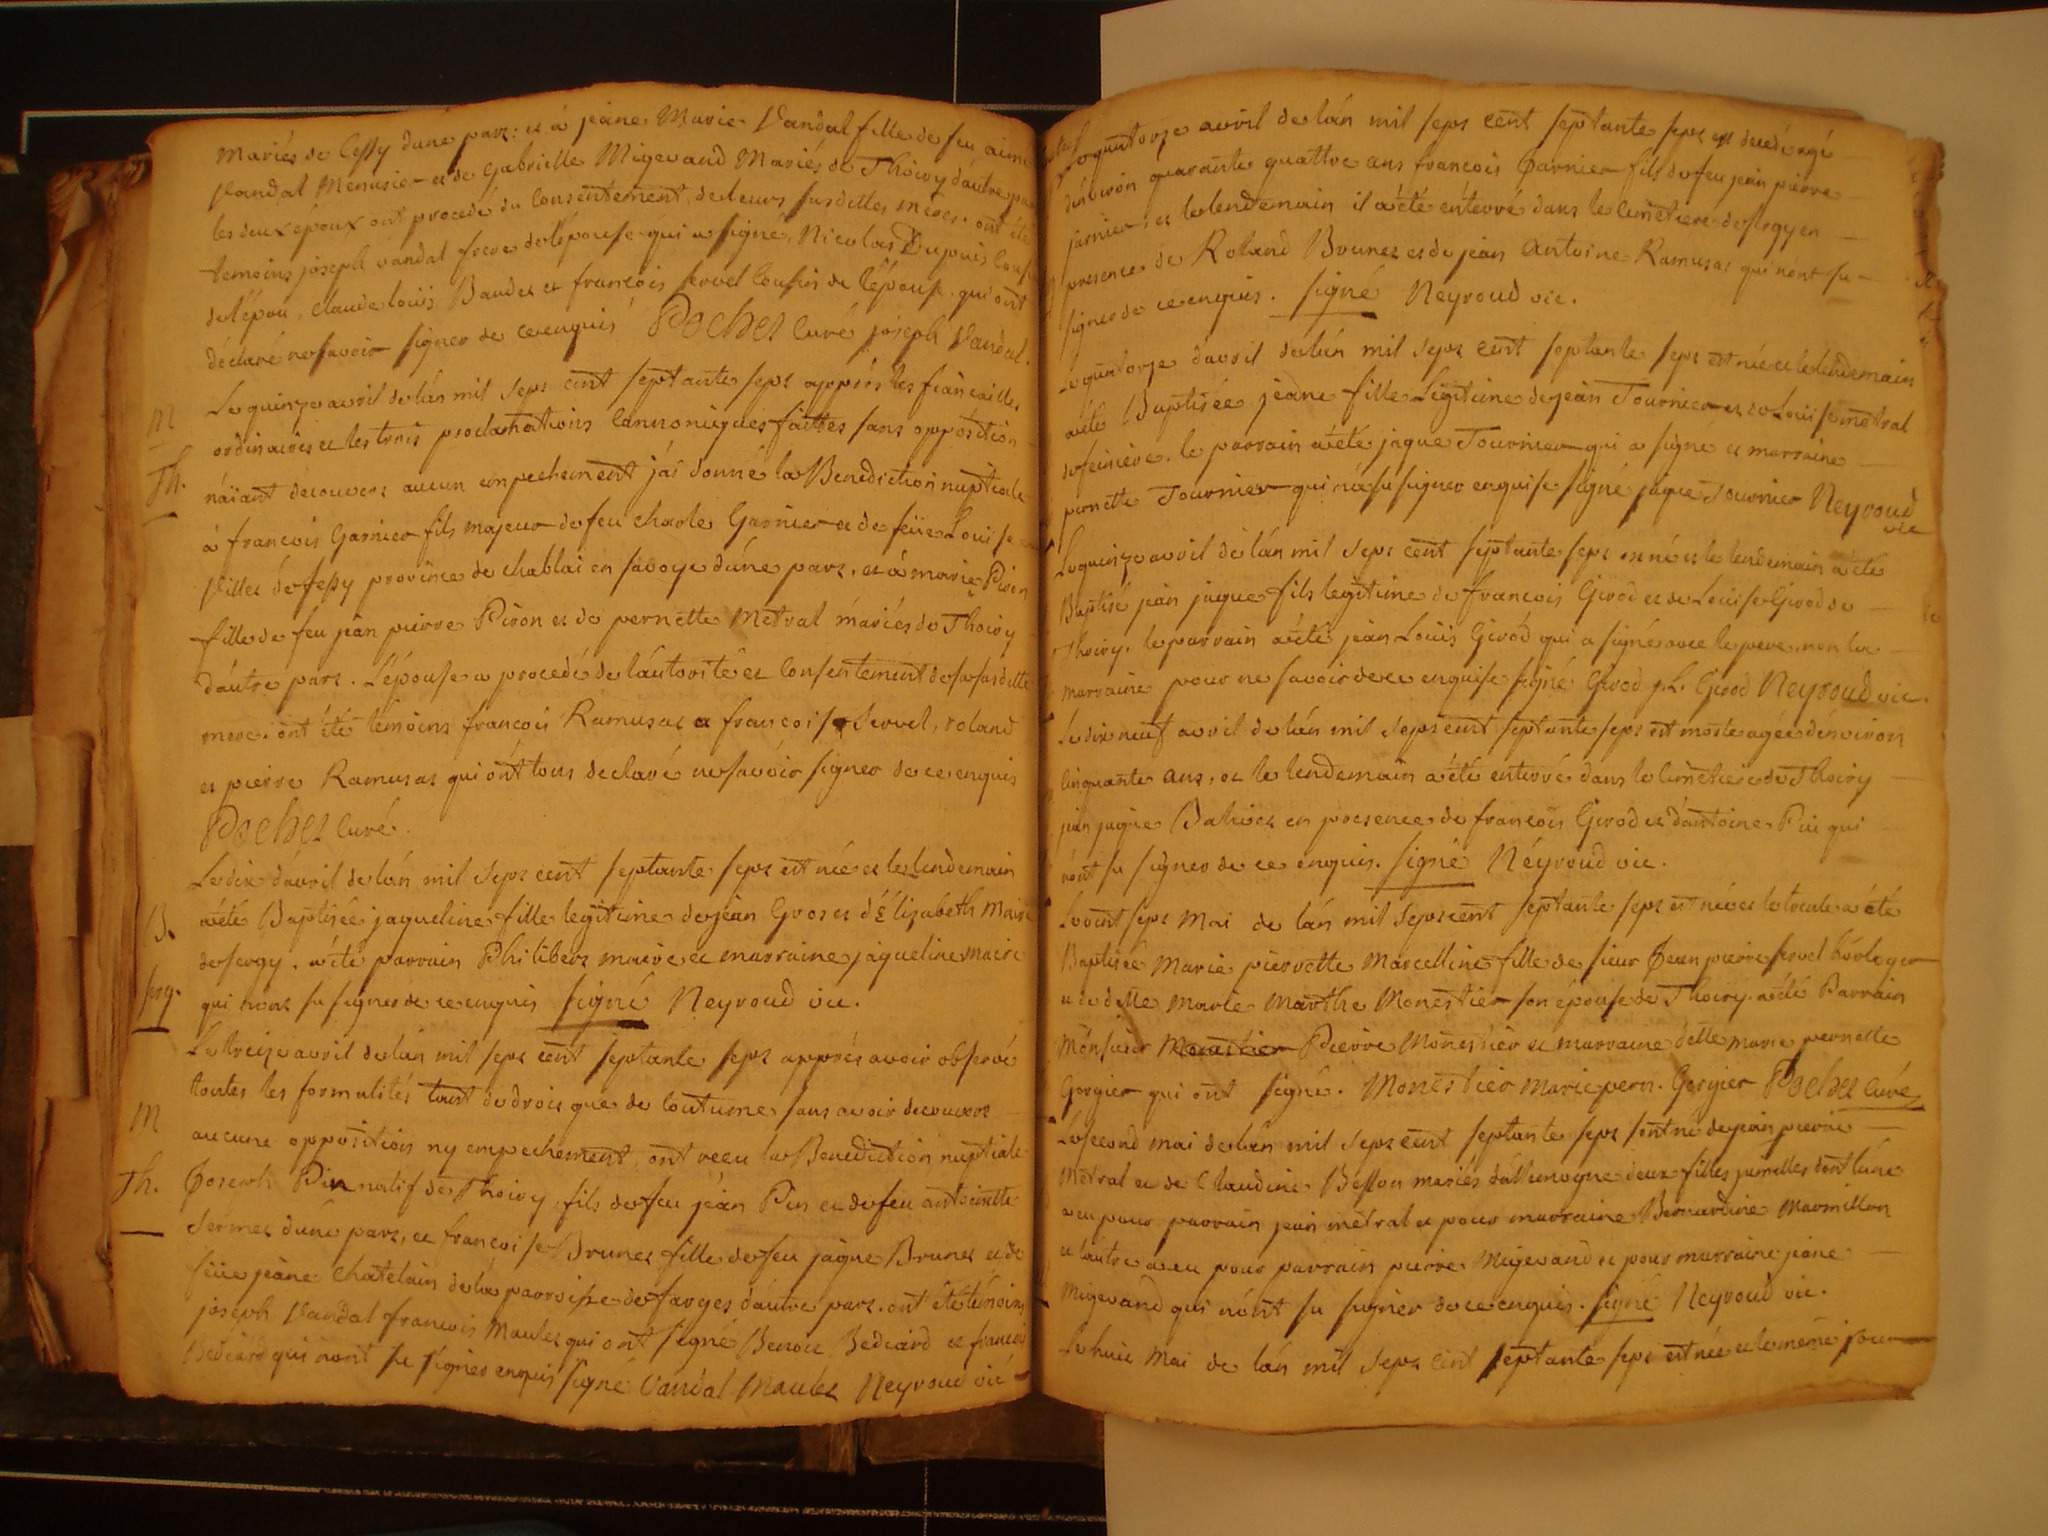 mariés de Cessy dune part: et à jeâne Marie Vandal fille de feu aimé
Vandal Menusier et de Gabrielle Migevand Mariés de Thoiry dáutre part
les deux époux ont procedé du Consentement de leurs susdittes méres. ont été
temoins joseph vandal frere de lépouse qui a signé, Nicolas Dupuis Cousin
de lépou, Claude loüis Baudet et françois servel Cousin de lépouse qui ont
déclaré ne savoir signer de ce enquis Pochet Curé joseph Vandal.
M
Th.
Le quinze avril de lán mil sept cent septante sept apprés les fiançailles
ordinaires et les trois proclamations Cannoniques faittes sans opposition
náiant découvert aucun empechement j'ái donné la Benediction nuptiale
à francois Garnier fils majeur de feu charle Garnier et de feüe Louise
Villet de fessy province de chablai en savoye dúne part, et à marie Piron
fille de feu jean pierre Piron et de pernette Metral mariés de Thoiry
dáutre part. Lépouse a procedé de láutorité et Consentement de sa susditte
mere. ont été temoins francois Ramusat et françoise Servel, roland
et pierre Ramusat qui ónt tous declaré ne savoir signer de ce enquis
Pochet Curé.
B.
sergy.
Le dix dávril de lán mil sept cent septante sept est née et le lendemain
a été Baptisée jaqueline fille legitime de jean Gros et d'Élizabeth Maire
de sergy. a été parrain Philibert maire et marraine jaqueline maire
qui nónt su signer de ce enquis signé Neyroud vic.
M
Th.
Le treize avril de lán mil sept cent septante sept apprés avoir observé
toutes les formalités tant de droit que de Coutume sans avoir decouvert
aucune opposition ny empechement, ont recu la Benediction nuptiale
Joseph Pin natif de Thoiry fils de feu jean Pin et de feu antoinette
Sermet dúne part, et françoise Brunet fille de feu jaque Brunet et de
feüe jeâne Chatelain de la parroisse de farges dáutre part. ont été témoins
joseph Vandal francois Maulet qui ont signé Benoit Bediard et francois
Bediard qui nónt su signer enquis signé Vandal Maulet Neyroud vic
Le quatorze avril de lán mil sept cent septante sept est decedé agé
dénviron quarante quattre ans francois Jarnier fils de feu jean pierre
jarnier, et le lendemain il a été énterré dans le Cimetiere de sergy en
presence de Roland Brunet et de jean Antoine Ramusat qui nónt su
signer de ce enquis. signé Neyroud vic.
Le quatorze dávril de lán mil sept cent septante sept est née et le lendemain
a été Baptisée jeâne fille Légitime de jean Tournier et de Louise metral
de feiniere. le parrain a été jaque Tournier qui a signé et marraine
pernette Tournier qui ná su signer enquise signé jaque Tournier Neyroud
vic
Le quinze avril de lán mil sept cent septante sept est né et le lendemain a été
Baptisé jean jaque fils legitime de francois Girod et de Louise Girod de
Thoiry. le parrain a été jean Loüis Girod qui a signé avec le pere, non la
marraine pour ne savoir de ce enquise signé Girod j. L. Girod Neyroud vic.
Le dix neuf avril de lán mil sept cent septante sept est morte agée dénviron
cinquante ans, et le lendemain a été enterré dans le Cimetiere de Thoiry
jean jaque en presence de francois Girod et dántoine Pin qui
nónt su signer de ce enquis. signé Neyroud vic.
Le vint sept Mai de lán mil sept cent septante sept est née et a été
Baptisée Marie pierrette Marcelline fille de sieur Jean pierre servel horloger
et de delle Marie Marthe Monestier son épouse de Thoiry. a été Parrain
Monsieur Monestier Pierre Monestier et marraine delle marie pernette
Gorgier qui ont signé. Monestier marie pern. Gorgier Pochet Curé
Le second mai de lán mil sept cent septante sept sont né de jean pierre
Metral et de Claudine Besson mariés dállemogne deux filles jumelles dont lúne
a eu pour parrain jean métral et pour marraine Bernardine Marmillon
et láutre a eu pour parrain pierre Migevand et pour marraine jeane
Migevand qui nónt su signer de ce enquis. signé Neyroud vic.
Le huit Mai de lán mil sept cent septante sept est née et le même jour